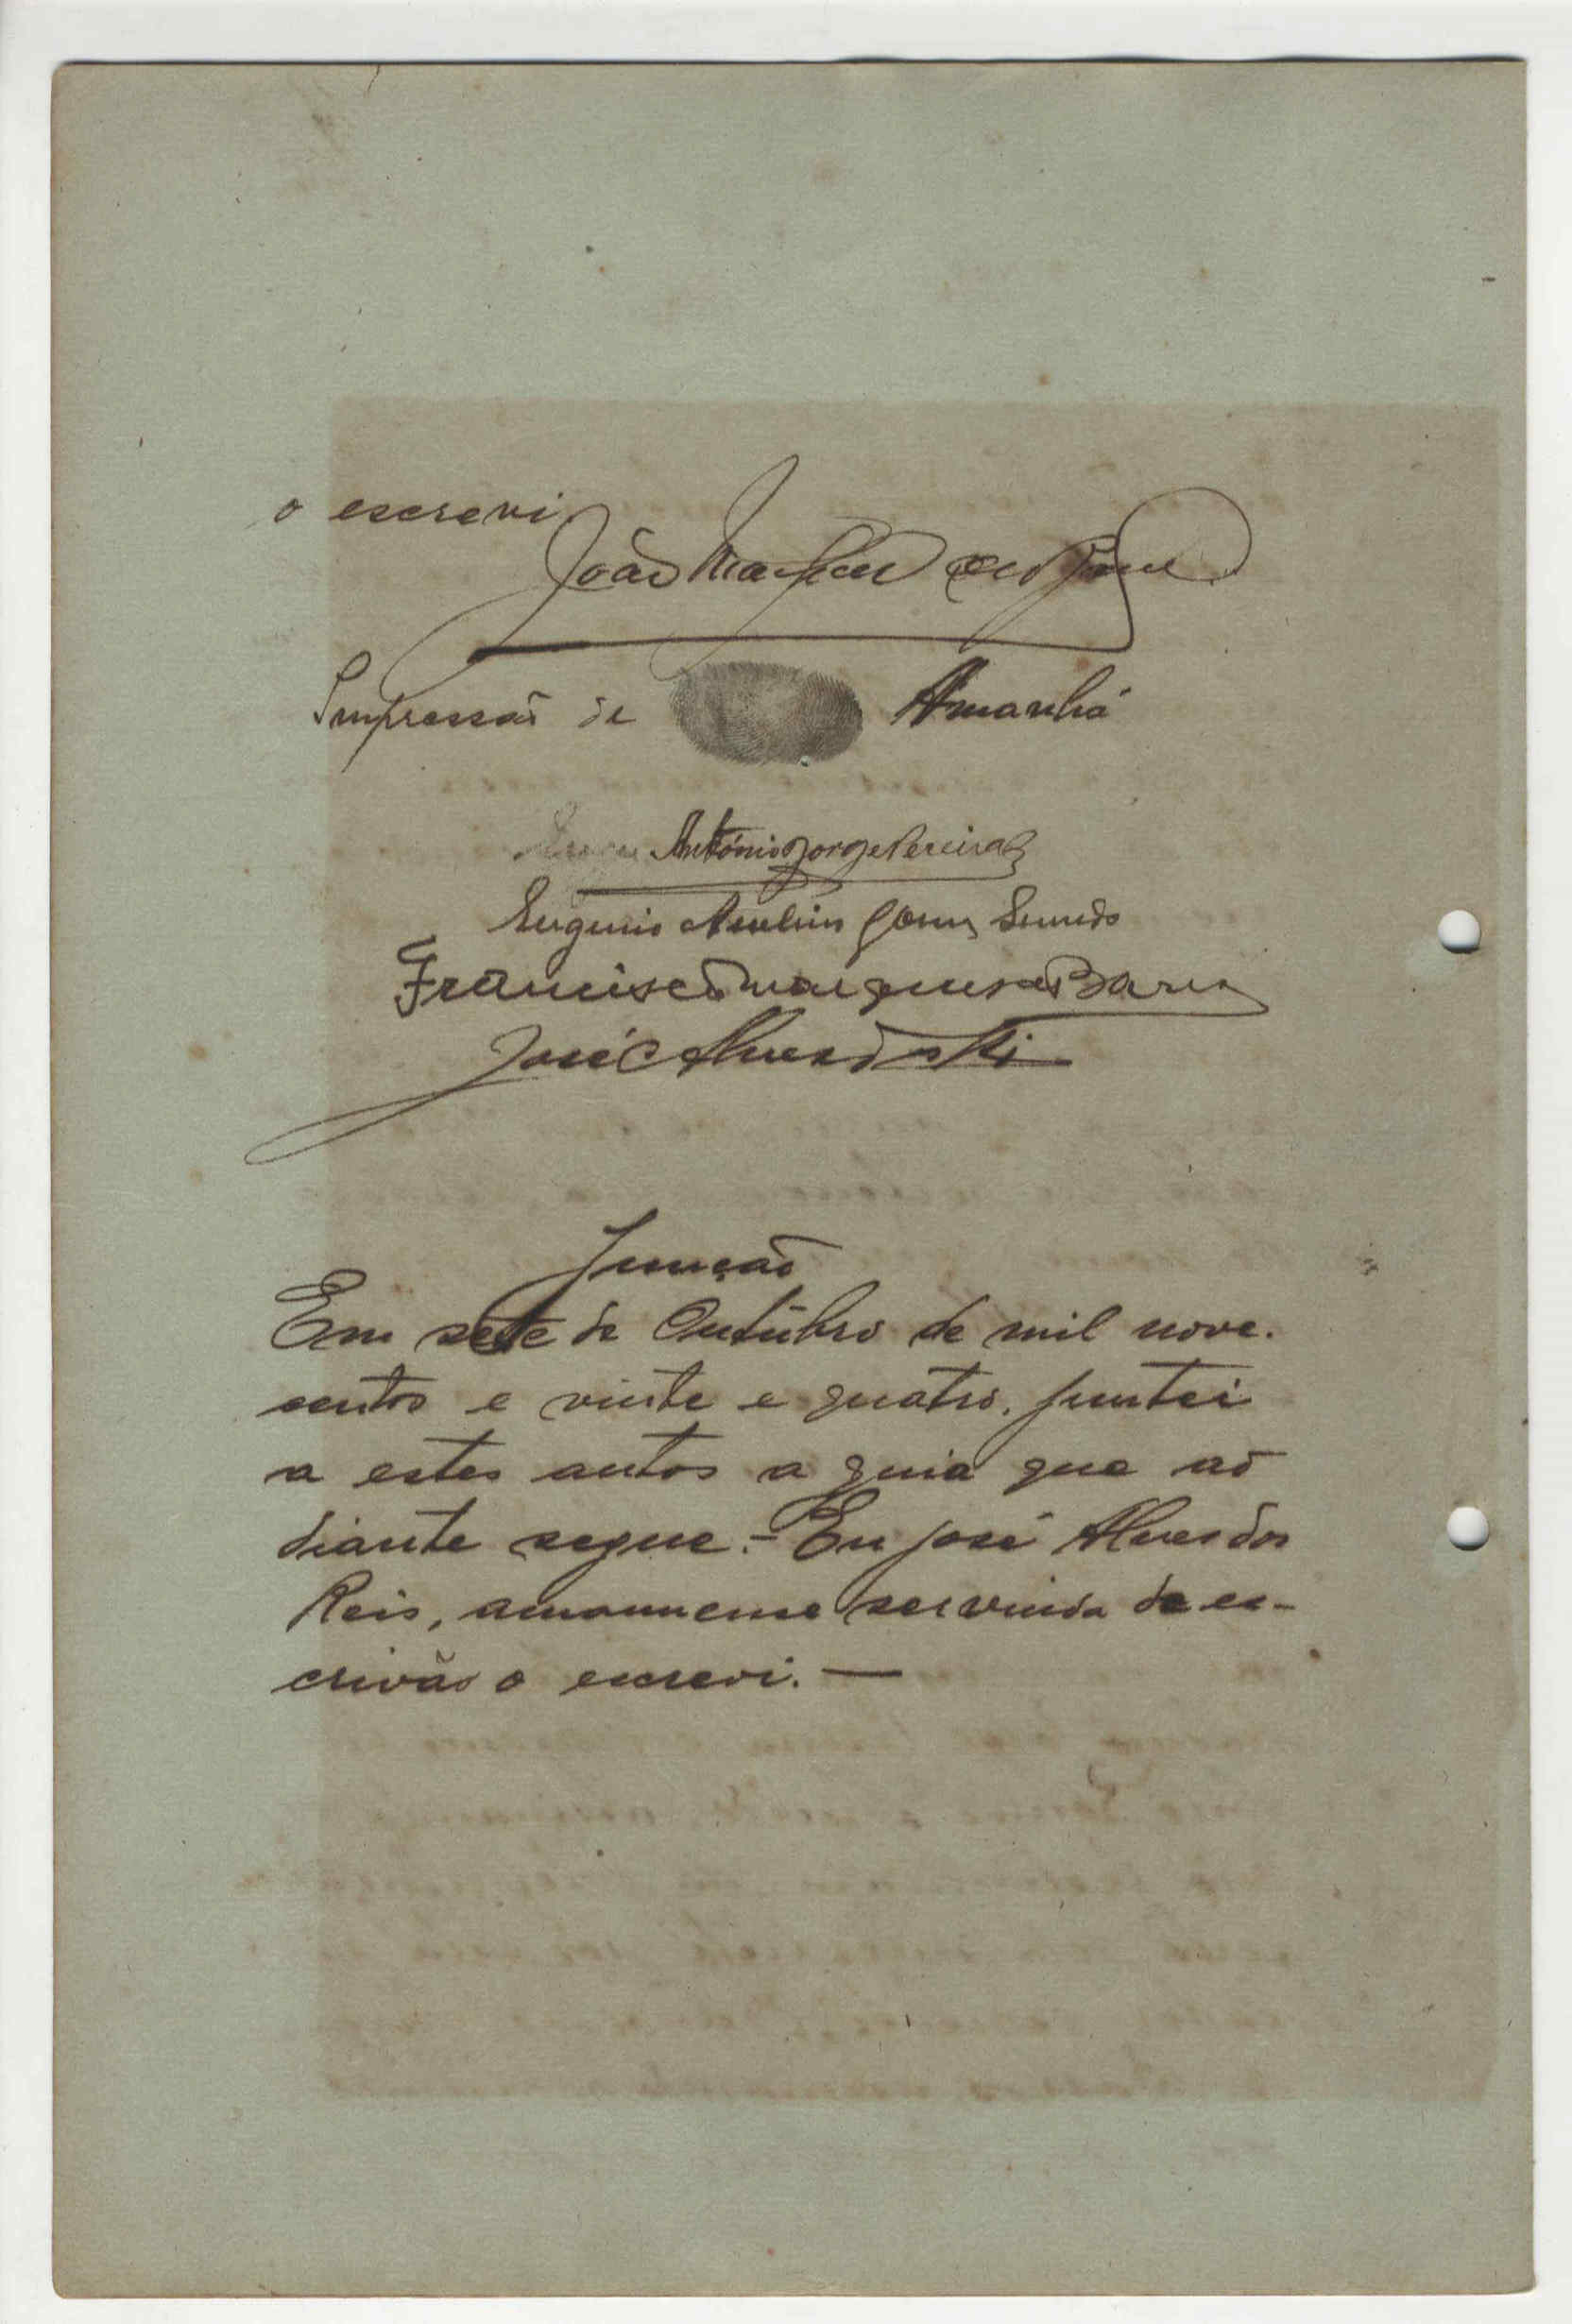 o escrevi
João
Impressão de Amanhã
António Jorge Pereira
Eugenio
Francisco Marques
José Alves dos Reis
Junção
Em sete de Outubro de mil nove-
centos e vinte e quatro, juntei
a estes autos a guia que ao
diante segue. - Eu José Alves dos
Reis, amanuense servindo de es-
crivão o escrevi. —